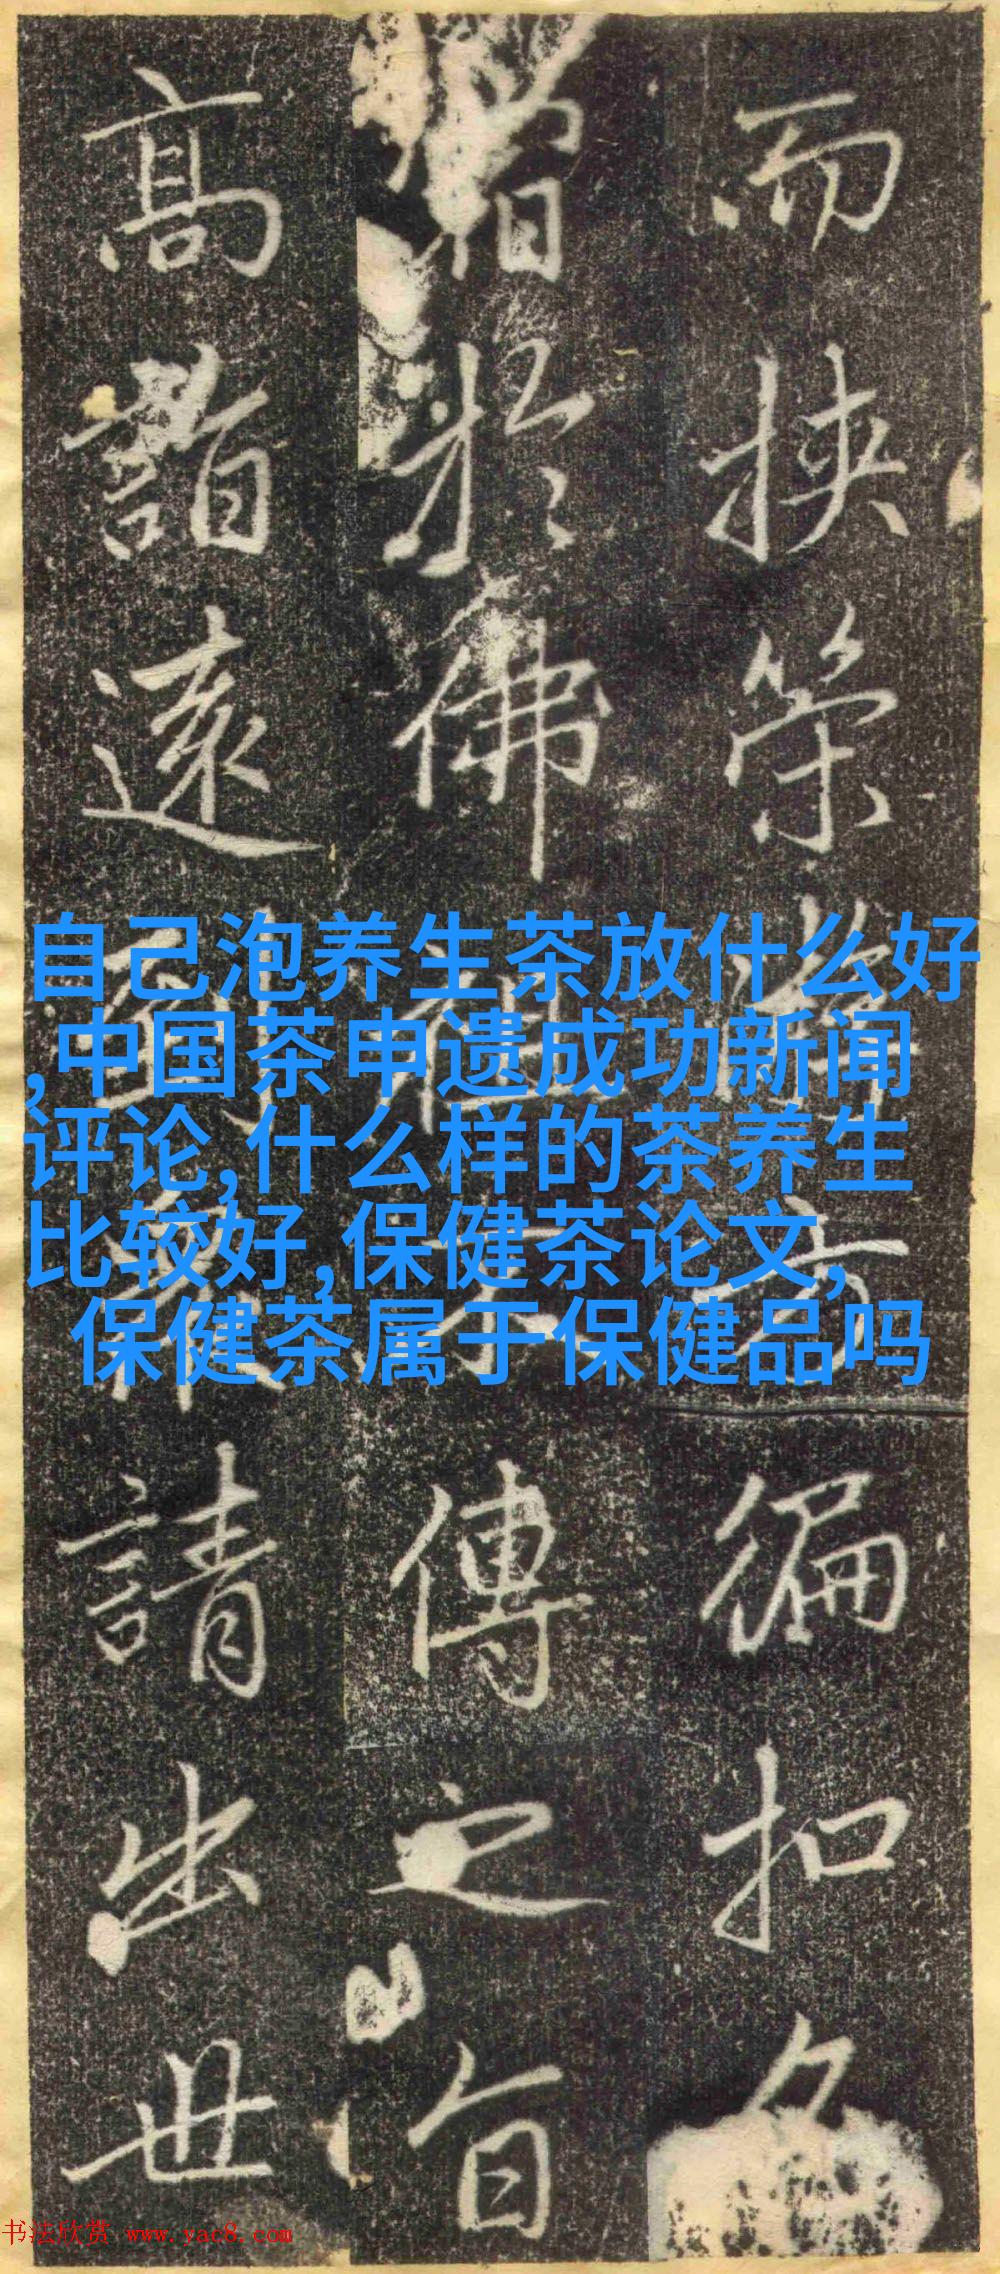 而挾策方徧扣
於佛祖不傳之旨
高詣遠到衆請出世
自己泡养生茶放什么好
,中国茶申遗成功新闻
评论,什么样的茶养生
比较好,保健茶论文,
保健茶属于保健品吗
书法欣赏 www.yac8.com